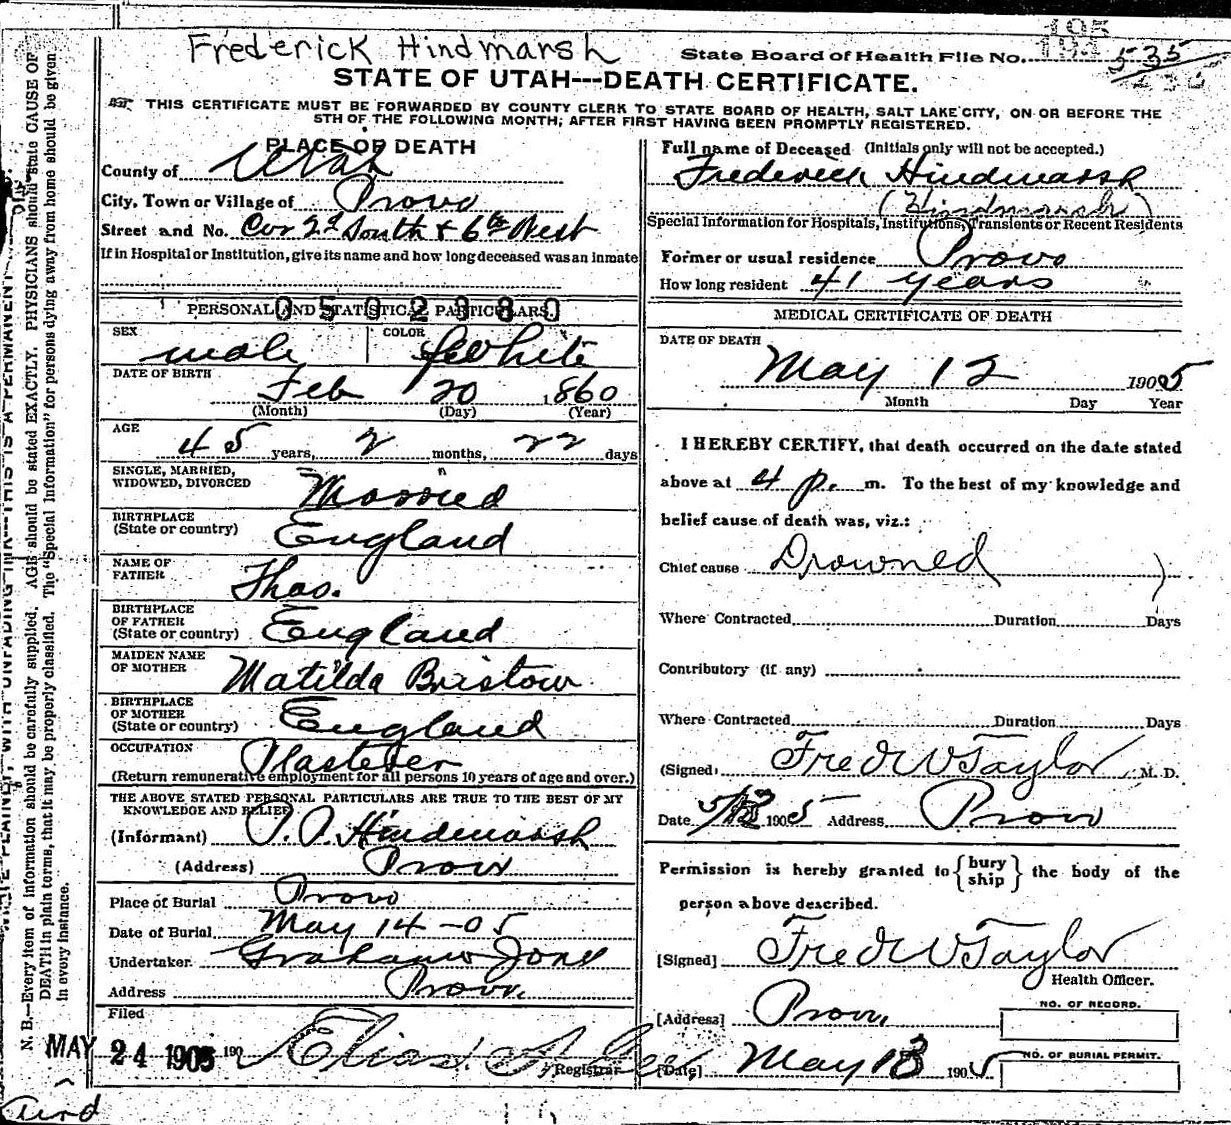 Frederick Hindmarsh
State Board of Health File No. 535
STATE OF UTAH---DEATH CERTIFICATE.
THIS CERTIFICATE MUST BE FORWARDED BY COUNTY CLERK TO STATE BOARD OF HEALTH, SALT LAKE CITY, ON OR BEFORE THE
5TH OF THE FOLLOWING MONTH, AFTER FIRST HAVING BEEN PROMPTLY REGISTERED.
PLACE OF DEATH
County of Utah
City, Town or Village of Provo
Street and No. Cor 2d South & 6th West
If in Hospital or Institution, give its name and how long deceased was an inmate
PERSONAL AND STATISTICAL PARTICULARS.
0502980
SEX male COLOR White
DATE OF BIRTH Feb 20 1860
(Month) (Day) (Year)
AGE 45 years, 2 months, 22 days
SINGLE, MARRIED,
WIDOWED, DIVORCED Married
BIRTHPLACE
(State or country) England
NAME OF
FATHER Thos.
BIRTHPLACE
OF FATHER
(State or country) England
MAIDEN NAME
OF MOTHER Matilda Bristow
BIRTHPLACE
OF MOTHER
(State or country) England
OCCUPATION Plasterer
(Return remunerative employment for all persons 10 years of age and over.)
THE ABOVE STATED PERSONAL PARTICULARS ARE TRUE TO THE BEST OF MY
KNOWLEDGE AND BELIEF
(Informant) Hindmarsh
(Address) Provo
Place of Burial Provo
Date of Burial May 14-05
Undertaker Graham Jones
Address Provo.
Filed
MAY 24 1905 190 Elias A. Gee, Registrar
Full name of Deceased (Initials only will not be accepted.)
Frederick Hindmarsh
(Hindmarsh)
Special Information for Hospitals, Institutions, Transients or Recent Residents
Former or usual residence Provo
How long resident 41 years
MEDICAL CERTIFICATE OF DEATH
DATE OF DEATH
May 12 1905
Month Day Year
I HEREBY CERTIFY, that death occurred on the date stated
above at 4 p. m. To the best of my knowledge and
belief cause of death was, viz.:
Chief cause Drowned
Where Contracted Duration Days
Contributory (if any)
Where Contracted Duration Days
(Signed) Fred W Taylor M. D.
Date 1905 Address Provo
Permission is hereby granted to {bury
ship} the body of the
person above described.
[Signed] Fred W Taylor
Health Officer.
[Address] Provo,
NO. OF RECORD.
[Date] May 13 1905
NO. OF BURIAL PERMIT.
N. B.—Every item of information should be carefully supplied. AGE should be stated EXACTLY. PHYSICIANS should state CAUSE OF
DEATH in plain terms, that it may be properly classified. The "Special Information" for persons dying away from home should be given
in every instance.